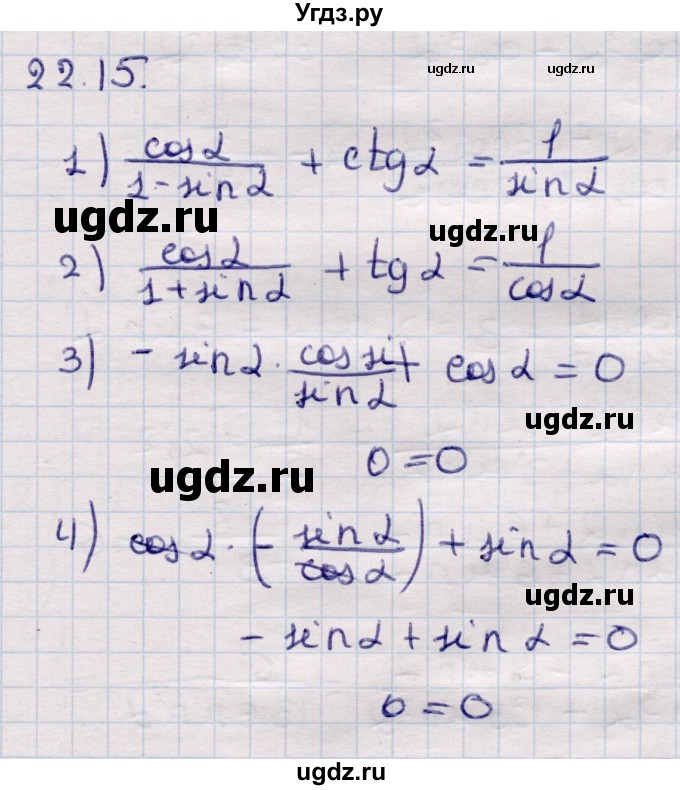 Угдз.ру
22.15.
ugdz.ru ugdz.ru
1) cosα/(1-sinα) + ctgα = 1/sinα
ugdz.ru ugdz.ru
2) cosα/(1+sinα) + tgα = 1/cosα
3) -sinα · cos si/sinα + cosα = 0
ugdz.ru
0=0
ugdz.ru
4) cosα · (- sinα/cosα) + sinα = 0
ugdz.ru
-sinα + sinα = 0
0=0
ugdz.ru